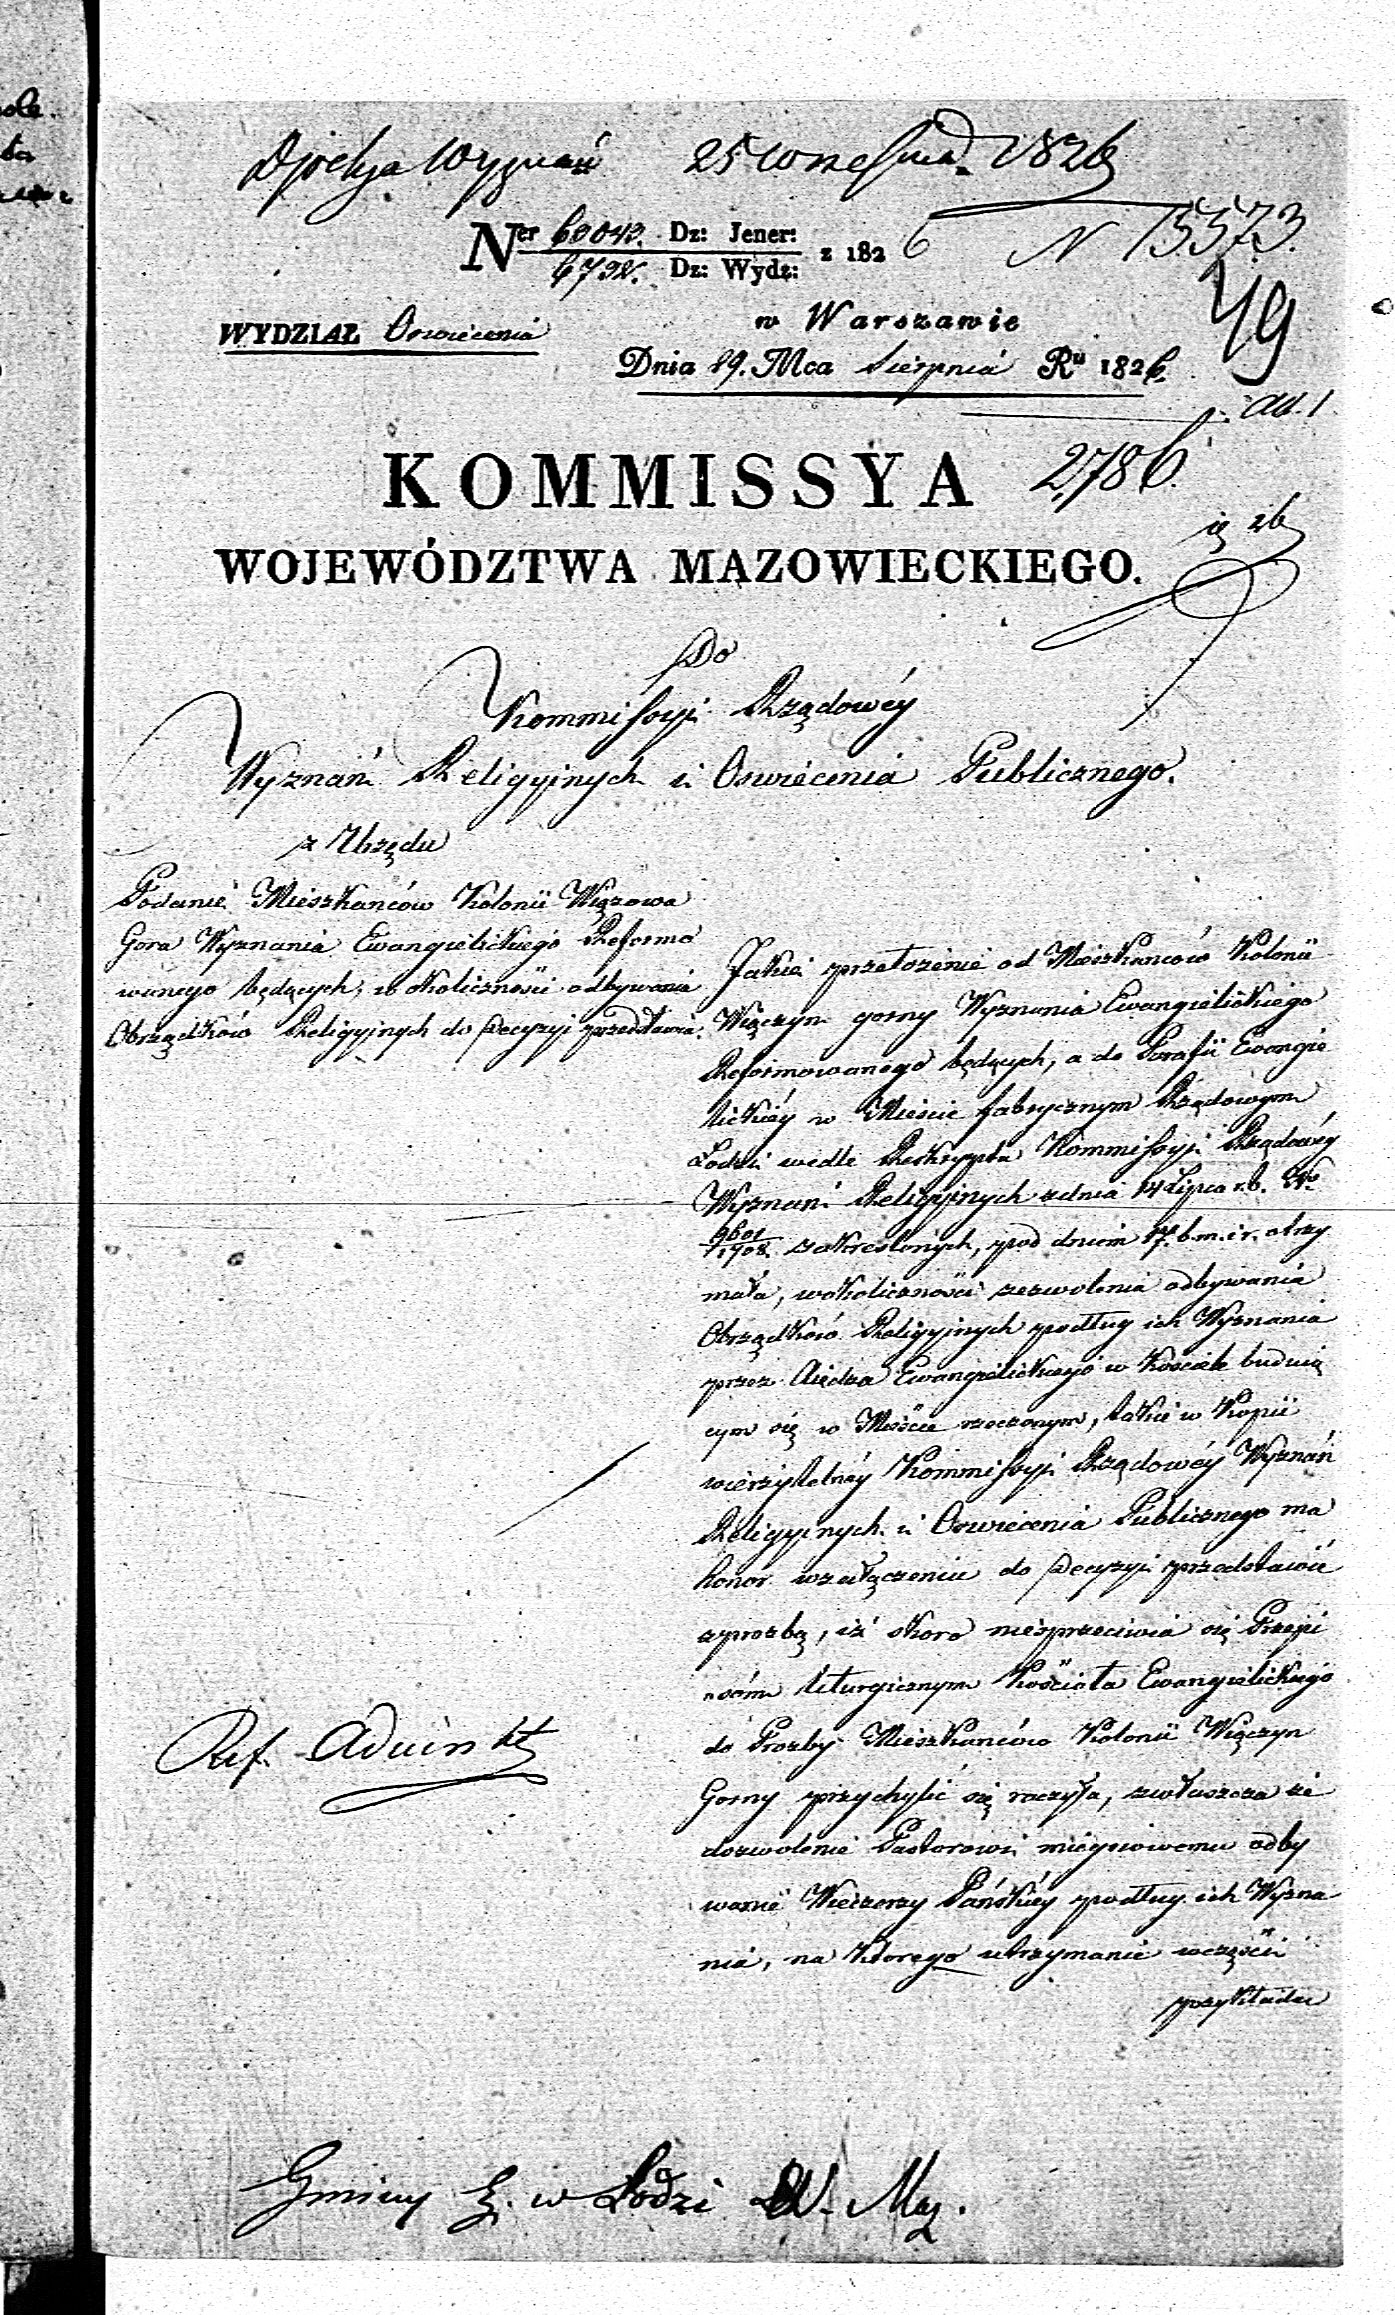 Wyznań 25 września 1826
Ner 60043. Dz: Jener: z 1826 N 15573.
6792. Dz: Wydz:
49
WYDZIAŁ Oswiecenia
w Warszawie
Dnia 19. Mca Sierpnia Ru 1826.
ad. 1
KOMMISSYA 2786
WOJEWÓDZTWA MAZOWIECKIEGO.
Do
Kommissyi Rządowéy
Wyznań Religyinych i Oswiecenia Publicznego.
z Urzędu
Podanie Mieszkanców Kolonii Wiązowa
Gora Wyznania Ewangielickiego Reformo
wanego będących, w okoliczności odbywania
Obrządków Religyinych do Decyzyi przedstawia.
Jakie przełożenie od Mieszkanców Kolonii
Wiączyn gorny Wyznania Ewangielickiego
Reformowanego będących, a do Parafii Ewangie
lickiéy w Mieście fabrycznym Rządowym
Łodzi wedle Reskryptu Kommissyi Rządowéy
Wyznań Religyinych z dnia 14 Lipca r.b. No
9601/1908. zakreślonych, pod dniem 17. b.m. i r. otrzy
mała, w okoliczności zezwolenia odbywania
Obrządków Religyinych podług ich Wyznania
przez Xiędza Ewangielickiego w Kościele buduią
cym się w Mieście rzeczonym, takie w Kopii
wierzytelnéy Kommissyi Rządowéy Wyznań
Religyinych i Oswiecenia Publicznego ma
honor w załączeniu do Decyzyi przedstawić
z prozbą, iż skoro niesprzeciwia się Przepi
som liturgicznym Kościoła Ewangielickiego
do Prozby Mieszkanców Kolonii Wiączyn
Gorny przychylić się raczyła, zwłaszcza że
dozwolenie Pastorowi mieyscowemu odby
wanie Wieczerzy Pańskiéy podług ich Wyzna
nia, na którego utrzymanie w części
przykłada
Ref.
Gminy E. w Łodzi W. Maz.